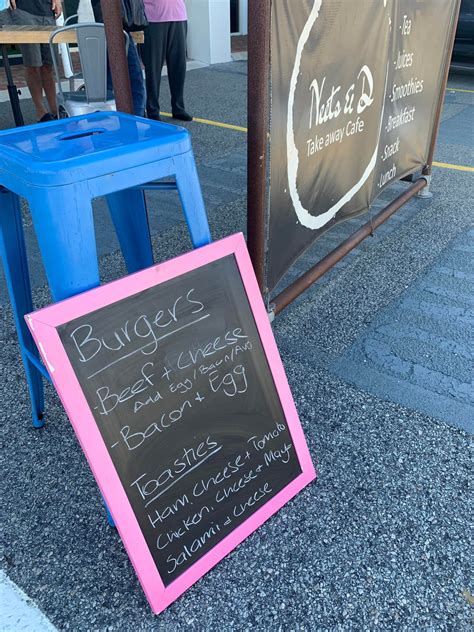 Nats & D
Take away Cafe
- Tea
- Juices
- Smoothies
- Breakfast
- Snack
- Lunch
Burgers
- Beef + Cheese
Add Egg/Bacon/Avo
- Bacon + Egg
Toasties
Ham, Cheese + Tomato
Chicken, Cheese + Mayo
Salami + Cheese